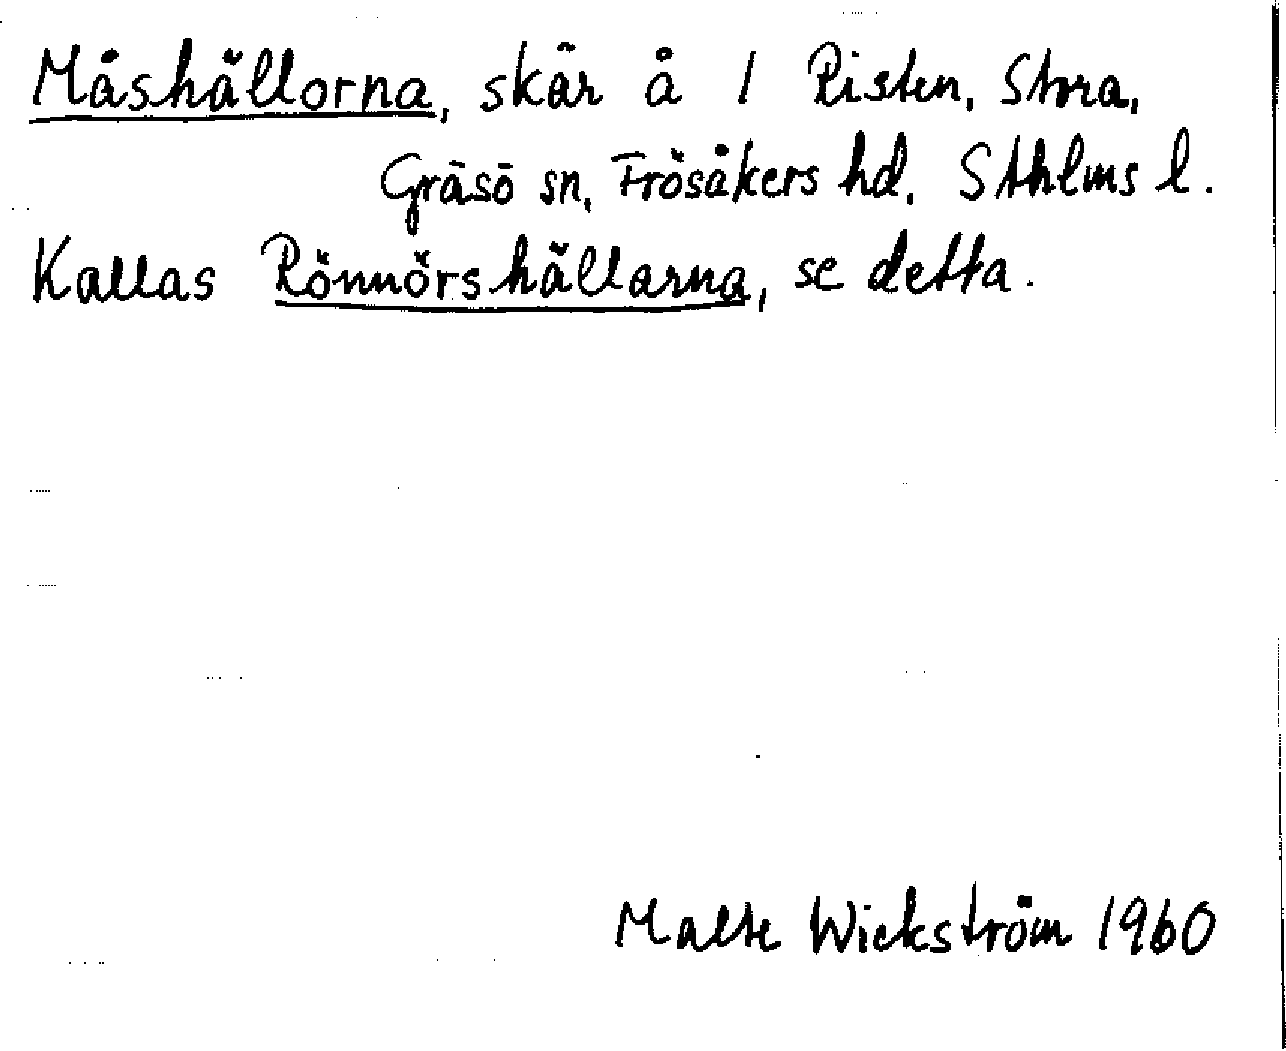 Måshällorna, skär å 1 Risten, Stora,
Gräsö sn, Frösåkers hd, Sthlms l.
Kallas Rönnörshällarna, se detta.
Malte Wickström 1960